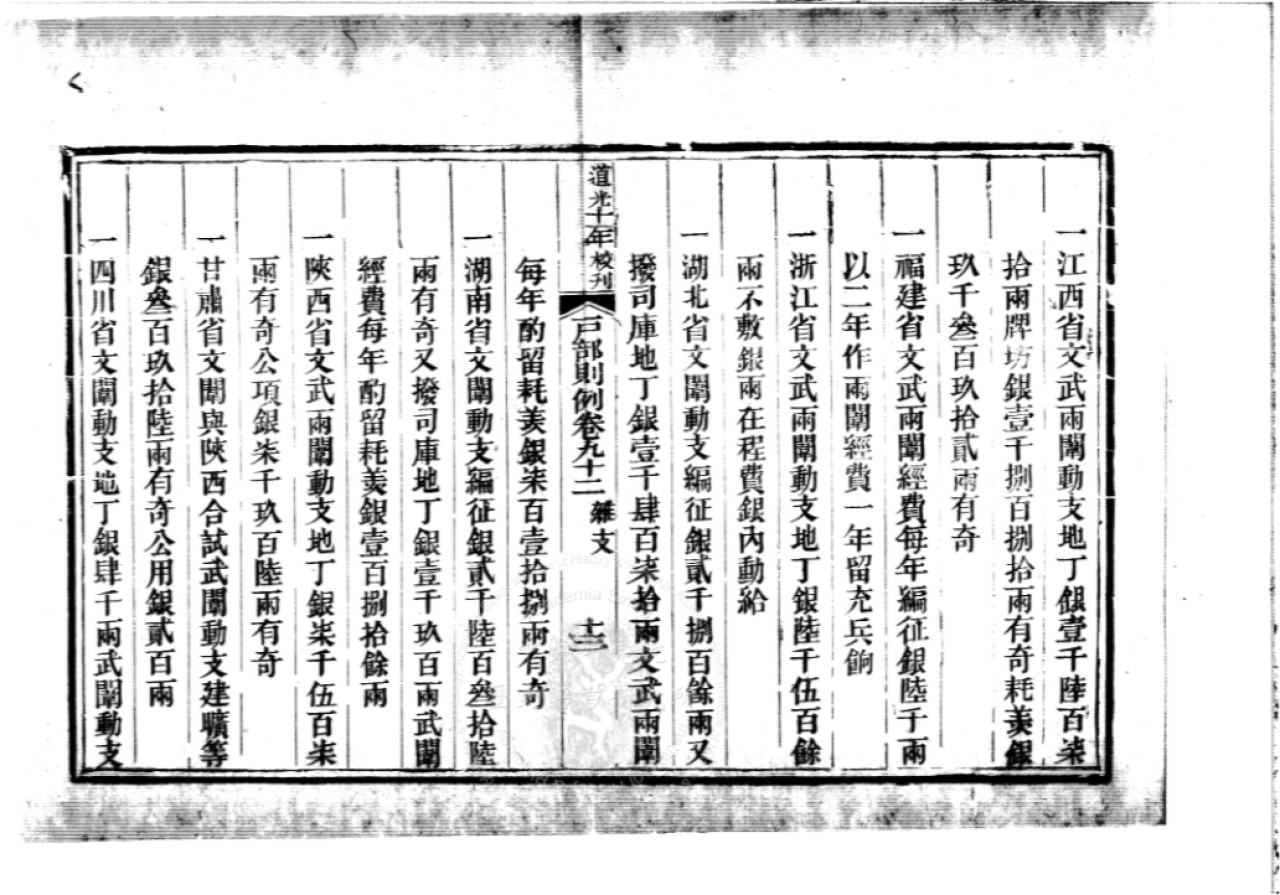 一江西省文武兩闈動支地丁銀壹千陸百柒
拾兩牌坊銀壹千捌百捌拾兩有奇耗羨銀
玖千叄百玖拾貳兩有奇
一福建省文武兩闈經費每年編征銀陸千兩
以二年作兩闈經費一年留充兵餉
一浙江省文武兩闈動支地丁銀陸千伍百餘
兩不敷銀兩在程費銀內動給
一湖北省文闈動支編征銀貳千捌百餘兩又
撥司庫地丁銀壹千肆百柒拾兩文武兩闈
道光十年校刊 戶部則例卷九十二 雜支 十三
每年酌留耗羨銀柒百壹拾捌兩有奇
一湖南省文闈動支編征銀貳千陸百叄拾陸
兩有奇又撥司庫地丁銀壹千玖百兩武闈
經費每年酌留耗羨銀壹百捌拾餘兩
一陝西省文武兩闈動支地丁銀柒千伍百柒
兩有奇公項銀柒千玖百陸兩有奇
一甘肅省文闈與陝西合試武闈動支建曠等
銀叄百玖拾陸兩有奇公用銀貳百兩
一四川省文闈動支地丁銀肆千兩武闈動支